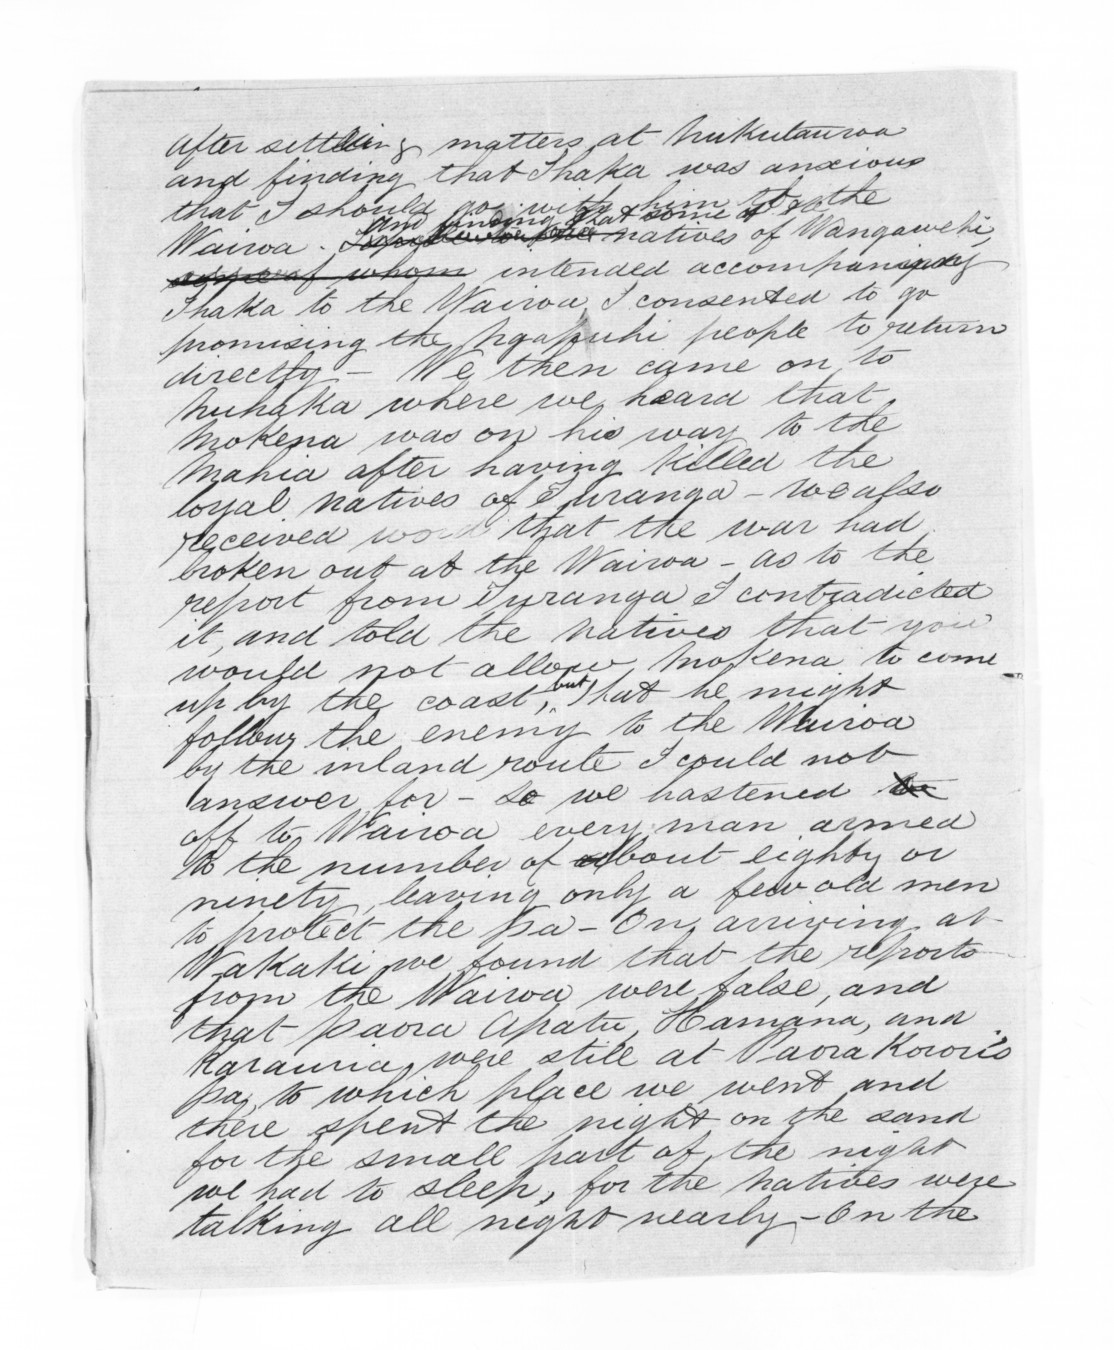 after settling matters at Nukutaurua
and finding that Ihaka was anxious
that I should go with him to the
and finding that some of the
Wairoa. natives of Wangawehi,
some of whom intended accompanying
Ihaka to the Wairoa, I consented to go
promising the Ngapuhi people to return
directly – We then came on to
Nuhaka where we heard that
Mokena was on his way to the
Mahia after having killed the
loyal natives of Turanga – we also
received word that the war had
broken out at the Wairoa – as to the
report from Turanga I contradicted
it, and told the natives that you
would not allow Mokena to come
up by the coast, but that he might
follow the enemy to the Wairoa
by the inland route I could not
answer for – so we hastened
off to Wairoa every man armed
to the number of about eighty or
ninety, leaving only a few old men
to protect the pa – On arriving at
Wakaki we found that the reports
from the Wairoa were false, and
that Paora Apatu, Hamana, and
Karauria, were still at Paora Korori's
pa, to which place we went and
there spent the night on the sand
for the small part of the night
we had to sleep, for the natives were
talking all night nearly – On the